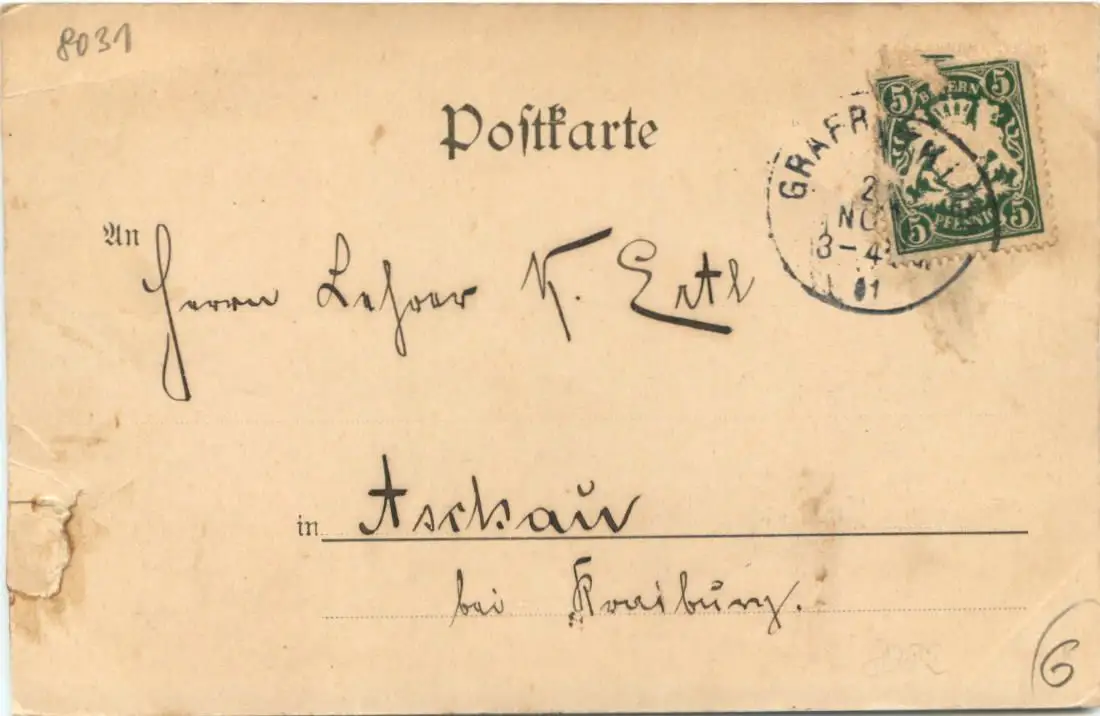 8031
Postkarte
5 BAYERN 5
GRAFR
2
NO
3-4
01
5 PFENNIG 5
An
Herrn Lehrer K. Ertl
in Aschau
bei Kraiburg.
6